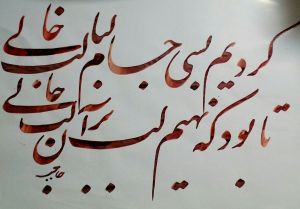 کردیم بسی جام لبالب خالی
تا بود که نهیم لب بر آن لب حالی